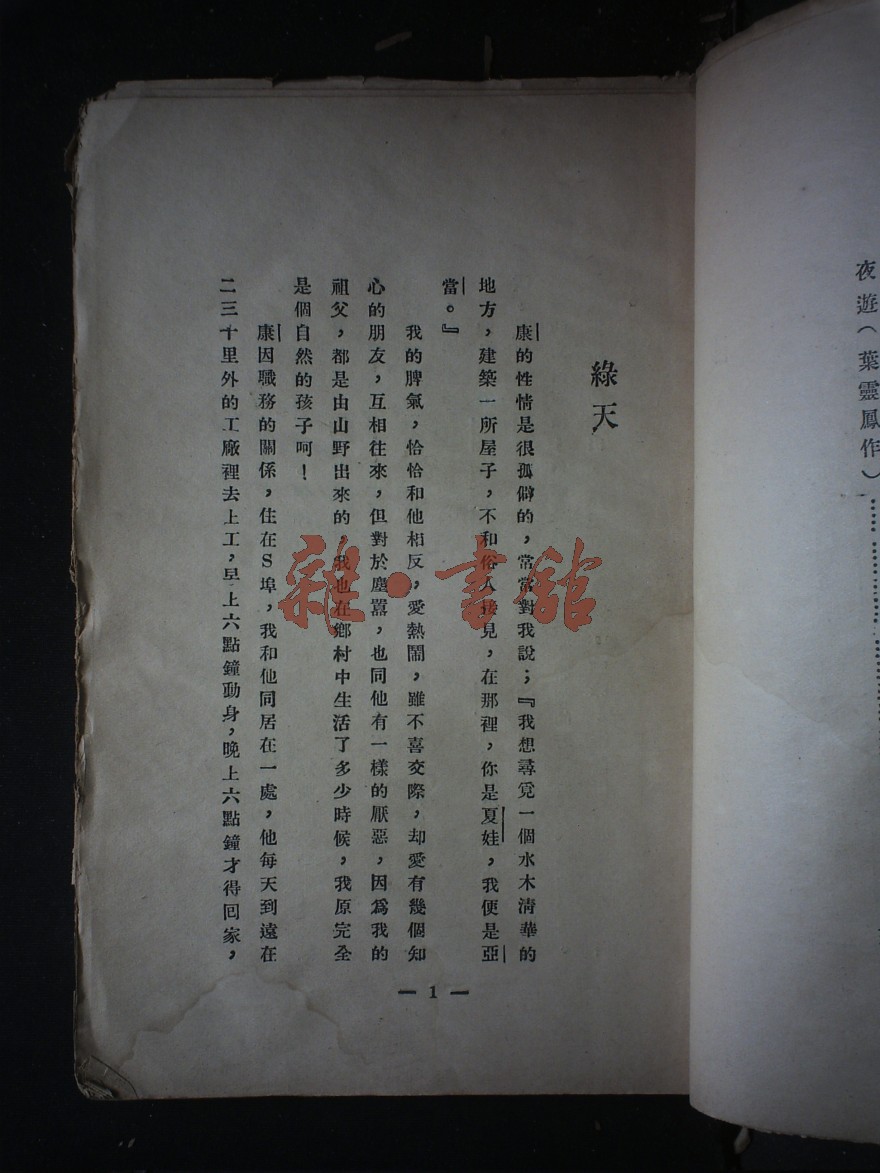 夜遊（葉靈鳳作）
綠天
康的性情是很孤僻的，常常對我說；『我想尋覓一個水木淸華的
地方，建築一所屋子，不和俗人接見，在那裡，你是夏娃，我便是亞
當。』
我的脾氣，恰恰和他相反，愛熱鬧，雖不喜交際，却愛有幾個知
心的朋友，互相往來，但對於塵囂，也同他有一樣的厭惡，因爲我的
祖父，都是由山野出來的，我也在鄉村中生活了多少時候，我原完全
是個自然的孩子呵！
康因職務的關係，住在S埠，我和他同居在一處，他每天到遠在
二三十里外的工廠裡去上工，早上六點鐘動身，晚上六點鐘才得回家，
— 1 —
雜·書館